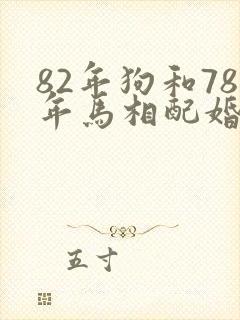 82年狗和78
年馬相配婚
五寸